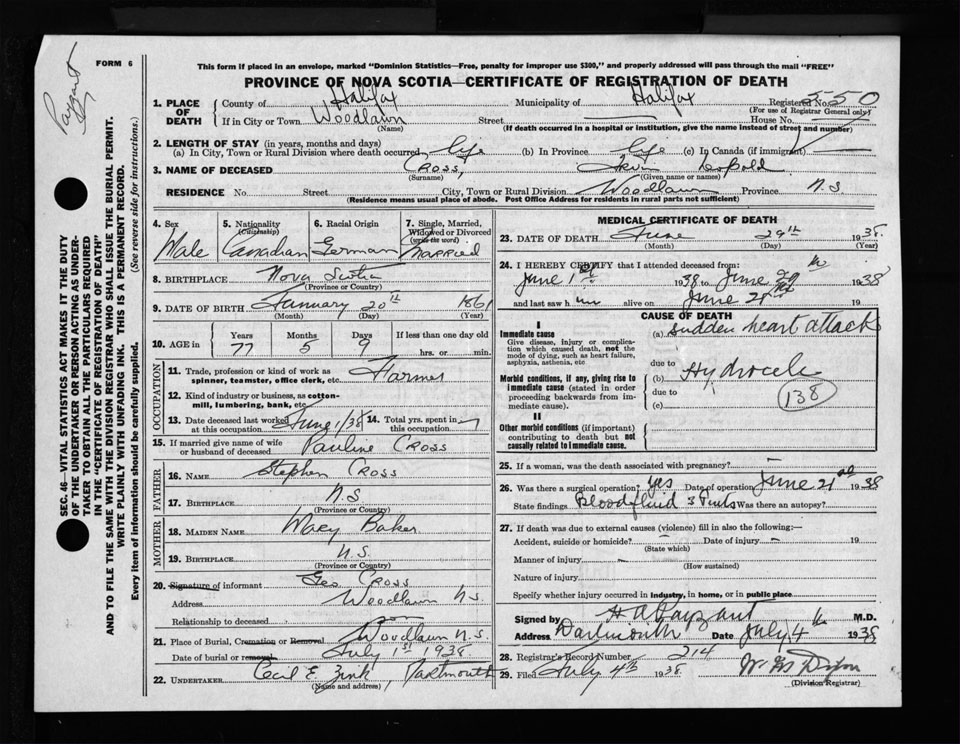 Payzant
FORM 6
This form if placed in an envelope, marked "Dominion Statistics—Free, penalty for improper use $300," and properly addressed will pass through the mail "FREE"
PROVINCE OF NOVA SCOTIA—CERTIFICATE OF REGISTRATION OF DEATH
SEC. 46—VITAL STATISTICS ACT MAKES IT THE DUTY
OF THE UNDERTAKER OR PERSON ACTING AS UNDER-
TAKER TO OBTAIN ALL THE PARTICULARS REQUIRED
IN THE "CERTIFICATE OF REGISTRATION OF DEATH"
AND TO FILE THE SAME WITH THE DIVISION REGISTRAR WHO SHALL ISSUE THE BURIAL PERMIT.
WRITE PLAINLY WITH UNFADING INK. THIS IS A PERMANENT RECORD.
Every item of information should be carefully supplied. (See reverse side for instructions.)
1. PLACE OF DEATH County of Halifax Municipality of Halifax Registered No. 550
(For use of Registrar General only)
If in City or Town Woodlawn Street — House No. —
(Name) (If death occurred in a hospital or institution, give the name instead of street and number)
2. LENGTH OF STAY (in years, months and days)
(a) In City, Town or Rural Division where death occurred life (b) In Province life (c) In Canada (if immigrant) —
3. NAME OF DECEASED Cross, Leopold
(Surname) (Given name or names)
RESIDENCE No. Street City, Town or Rural Division Woodlawn Province N.S.
(Residence means usual place of abode. Post Office Address for residents in rural parts not sufficient)
4. Sex 5. Nationality (Citizenship) 6. Racial Origin 7. Single, Married, Widowed or Divorced (write the word)
Male Canadian German Married
8. BIRTHPLACE Nova Scotia
(Province or Country)
9. DATE OF BIRTH January 20th 1861
(Month) (Day) (Year)
10. AGE in Years Months Days If less than one day old
77 5 9 hrs. or min.
OCCUPATION
11. Trade, profession or kind of work as
spinner, teamster, office clerk, etc. Farmer
12. Kind of industry or business, as cotton-
mill, lumbering, bank, etc.
13. Date deceased last worked at this occupation June 1/38 14. Total yrs. spent in this occupation
15. If married give name of wife or husband of deceased Pauline Cross
FATHER
16. NAME Stephen Cross
17. BIRTHPLACE N.S.
(Province or Country)
MOTHER
18. MAIDEN NAME Macy Baker
19. BIRTHPLACE N.S.
(Province or Country)
20. Signature of informant Geo Cross
Address Woodlawn N.S.
Relationship to deceased
21. Place of Burial, Cremation or Removal Woodlawn N.S.
Date of burial or removal July 1st 1938
22. UNDERTAKER Cecil E. Zink, Dartmouth
(Name and address)
MEDICAL CERTIFICATE OF DEATH
23. DATE OF DEATH June 29th 1938.
(Month) (Day) (Year)
24. I HEREBY CERTIFY that I attended deceased from:
June 1st 1938 to June 1938
and last saw him alive on June 28th 19
CAUSE OF DEATH
I
Immediate cause
Give disease, injury or complica-
tion which caused death, not the
mode of dying, such as heart failure,
asphyxia, asthenia, etc
(a) Sudden heart attack
due to
Morbid conditions, if any, giving rise to
immediate cause (stated in order
proceeding backwards from im-
mediate cause).
(b) Hydrocele
due to
(c)
138
II
Other morbid conditions (if important)
contributing to death but not
causally related to immediate cause.
25. If a woman, was the death associated with pregnancy? —
26. Was there a surgical operation? yes Date of operation June 21st 1938
State findings Bloody fluid 3 Pints Was there an autopsy?
27. If death was due to external causes (violence) fill in also the following:—
Accident, suicide or homicide? — Date of injury — 19
(State which)
Manner of injury —
(How sustained)
Nature of injury
Specify whether injury occurred in industry, in home, or in public place
Signed by H A Payzant M.D.
Address Dartmouth Date July 4th 1938
28. Registrar's Record Number 214
29. Filed July 4th 1938. W. M. Dixon
(Division Registrar)